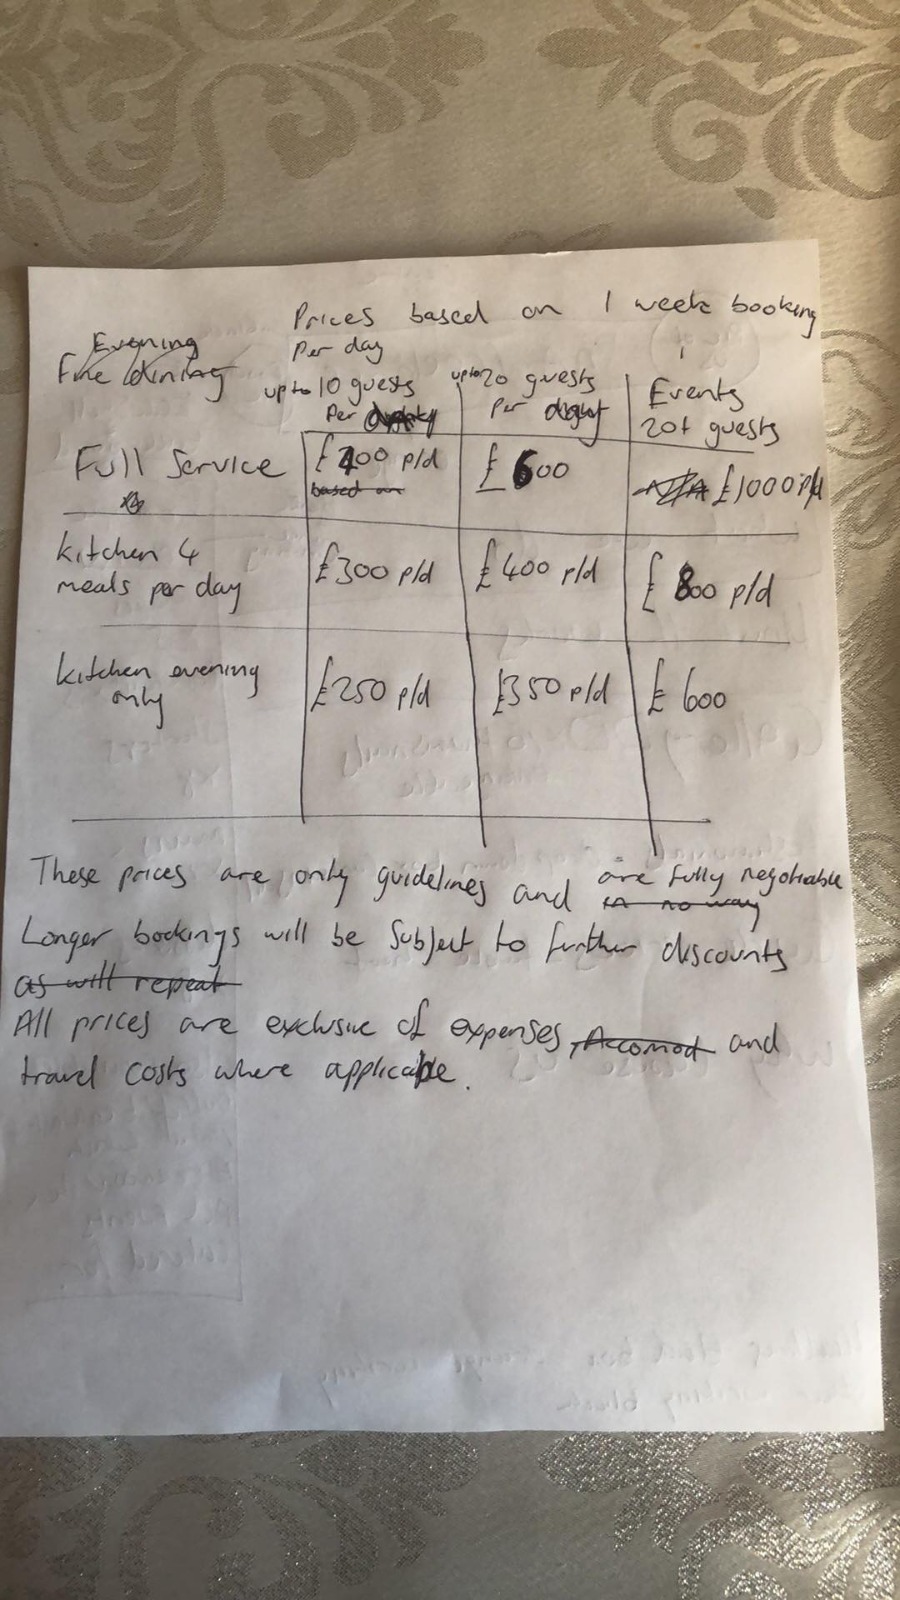 Prices based on 1 week booking
Evening
Per day
Fine dining
up to 10 guests
Per
up to 20 guests
Per
Events
20+ guests
Full Service
£400 p/d
based on
£600
N/A £1000 p/d
Kitchen 4
meals per day
£300 p/d
£400 p/d
£800 p/d
Kitchen evening
only
£250 p/d
£350 p/d
£600
These prices are only guidelines and are fully negotiable
in no way
Longer bookings will be subject to further discounts
as will repeat
All prices are exclusive of expenses, Accomod and
travel costs where applicable.